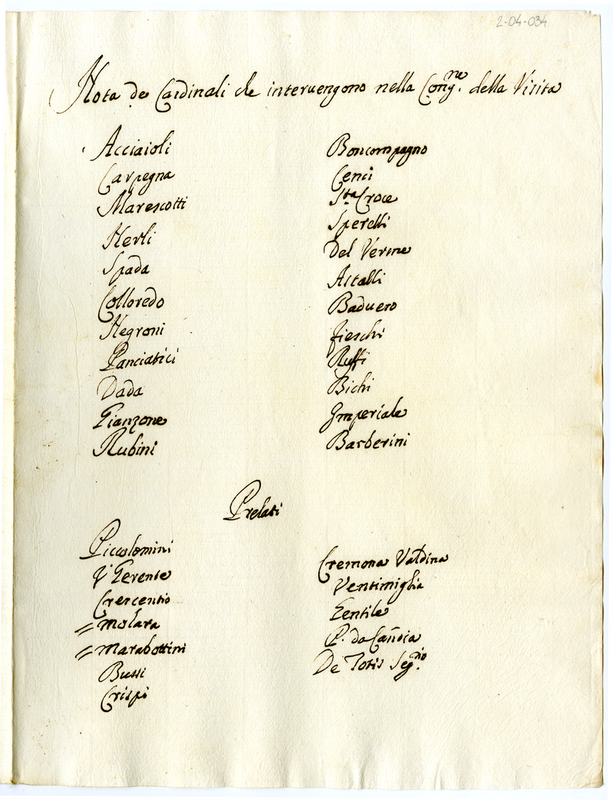 2-04-034
Nota de Cardinali che interuengono nella Cong.ne della Visita
Acciaioli
Carpegna
Marescotti
Nerli
Spada
Colloredo
Negroni
Panciatici
Dada
Gianzone
Rubini
Boncompagno
Cenci
S.ta Croce
Sperelli
Del Verme
Astalli
Baduero
Fieschi
Ruffi
Bichi
Imperiale
Barberini
Prelati
Piccolomini
V Gerente
Crescentio
= Molara
= Marabottini
Bussi
Crispi
Cremona Valdina
Ventimiglia
Gentile
P. da Candia
De Totis Seg.rio